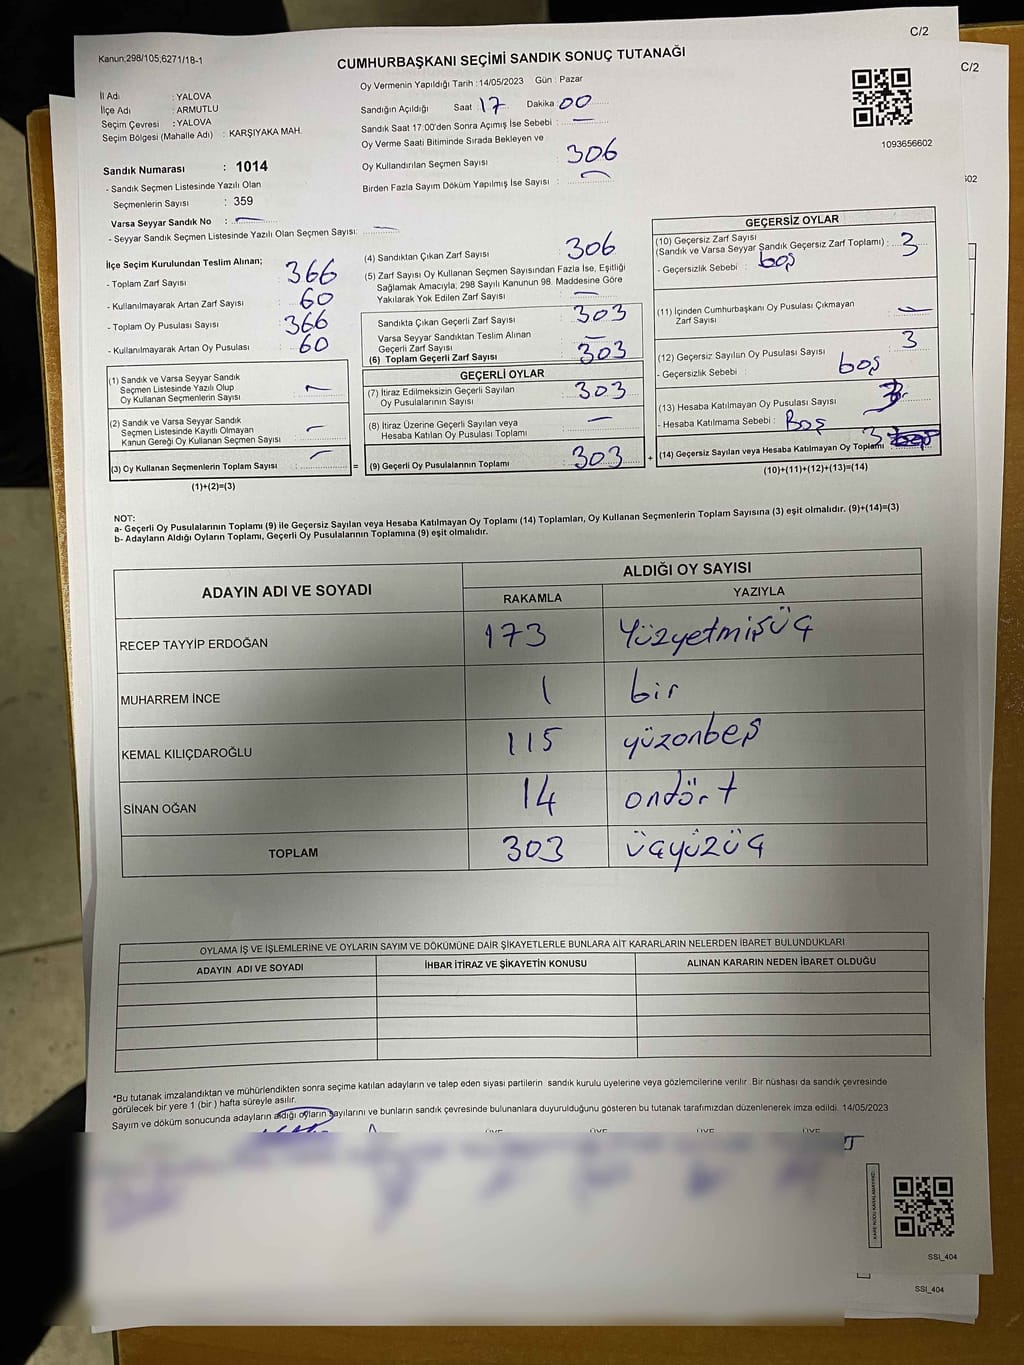 C/2
Kanun;298/105;6271/18-1
CUMHURBAŞKANI SEÇİMİ SANDIK SONUÇ TUTANAĞI
C/2
İl Adı : YALOVA
İlçe Adı : ARMUTLU
Seçim Çevresi : YALOVA
Seçim Bölgesi (Mahalle Adı) : KARŞIYAKA MAH.
Oy Vermenin Yapıldığı Tarih : 14/05/2023 Gün : Pazar
Sandığın Açıldığı Saat 17 Dakika : 00
Sandık Saat 17:00'den Sonra Açımış İse Sebebi : —
Oy Verme Saati Bitiminde Sırada Bekleyen ve
Oy Kullandırılan Seçmen Sayısı 306
Birden Fazla Sayım Döküm Yapılmış İse Sayısı : —
1093656602
502
Sandık Numarası : 1014
- Sandık Seçmen Listesinde Yazılı Olan
Seçmenlerin Sayısı : 359
Varsa Seyyar Sandık No : —
- Seyyar Sandık Seçmen Listesinde Yazılı Olan Seçmen Sayısı: —
İlçe Seçim Kurulundan Teslim Alınan;
- Toplam Zarf Sayısı : 366
- Kullanılmayarak Artan Zarf Sayısı : 60
- Toplam Oy Pusulası Sayısı : 366
- Kullanılmayarak Artan Oy Pusulası : 60
(1) Sandık ve Varsa Seyyar Sandık
Seçmen Listesinde Yazılı Olup
Oy Kullanan Seçmenlerin Sayısı : —
(2) Sandık ve Varsa Seyyar Sandık
Seçmen Listesinde Kayıtlı Olmayan
Kanun Gereği Oy Kullanan Seçmen Sayısı : —
(3) Oy Kullanan Seçmenlerin Toplam Sayısı : —
(1)+(2)=(3)
(4) Sandıktan Çıkan Zarf Sayısı : 306
(5) Zarf Sayısı Oy Kullanan Seçmen Sayısından Fazla İse, Eşitliği
Sağlamak Amacıyla; 298 Sayılı Kanunun 98. Maddesine Göre
Yakılarak Yok Edilen Zarf Sayısı : —
Sandıkta Çıkan Geçerli Zarf Sayısı : 303
Varsa Seyyar Sandıktan Teslim Alınan
Geçerli Zarf Sayısı : —
(6) Toplam Geçerli Zarf Sayısı : 303
GEÇERLİ OYLAR
(7) İtiraz Edilmeksizin Geçerli Sayılan
Oy Pusulalarının Sayısı : 303
(8) İtiraz Üzerine Geçerli Sayılan veya
Hesaba Katılan Oy Pusulası Toplamı : —
= (9) Geçerli Oy Pusulalarının Toplamı : 303 +
GEÇERSİZ OYLAR
(10) Geçersiz Zarf Sayısı
(Sandık ve Varsa Seyyar Sandık Geçersiz Zarf Toplamı) : 3
- Geçersizlik Sebebi : boş
(11) İçinden Cumhurbaşkanı Oy Pusulası Çıkmayan
Zarf Sayısı : —
(12) Geçersiz Sayılan Oy Pusulası Sayısı : 3
- Geçersizlik Sebebi : boş
(13) Hesaba Katılmayan Oy Pusulası Sayısı : 3
- Hesaba Katılmama Sebebi : Boş
(14) Geçersiz Sayılan veya Hesaba Katılmayan Oy Toplamı : 3
(10)+(11)+(12)+(13)=(14)
NOT:
a- Geçerli Oy Pusulalarının Toplamı (9) ile Geçersiz Sayılan veya Hesaba Katılmayan Oy Toplamı (14) Toplamları, Oy Kullanan Seçmenlerin Toplam Sayısına (3) eşit olmalıdır. (9)+(14)=(3)
b- Adayların Aldığı Oyların Toplamı, Geçerli Oy Pusulalarının Toplamına (9) eşit olmalıdır.
ADAYIN ADI VE SOYADI ALDIĞI OY SAYISI
RAKAMLA YAZIYLA
RECEP TAYYİP ERDOĞAN 173 Yüzyetmişüç
MUHARREM İNCE 1 bir
KEMAL KILIÇDAROĞLU 115 yüzonbeş
SİNAN OĞAN 14 ondört
TOPLAM 303 üçyüzüç
OYLAMA İŞ VE İŞLEMLERİNE VE OYLARIN SAYIM VE DÖKÜMÜNE DAİR ŞİKAYETLERLE BUNLARA AİT KARARLARIN NELERDEN İBARET BULUNDUKLARI
ADAYIN ADI VE SOYADI İHBAR İTİRAZ VE ŞİKAYETİN KONUSU ALINAN KARARIN NEDEN İBARET OLDUĞU
*Bu tutanak imzalandıktan ve mühürlendikten sonra seçime katılan adayların ve talep eden siyasi partilerin sandık kurulu üyelerine veya gözlemcilerine verilir. Bir nüshası da sandık çevresinde
görülecek bir yere 1 (bir) hafta süreyle asılır.
Sayım ve döküm sonucunda adayların aldığı oyların sayılarını ve bunların sandık çevresinde bulunanlara duyurulduğunu gösteren bu tutanak tarafımızdan düzenlenerek imza edildi. 14/05/2023
ÜYE ÜYE ÜYE ÜYE
SSI_404
SSI_404